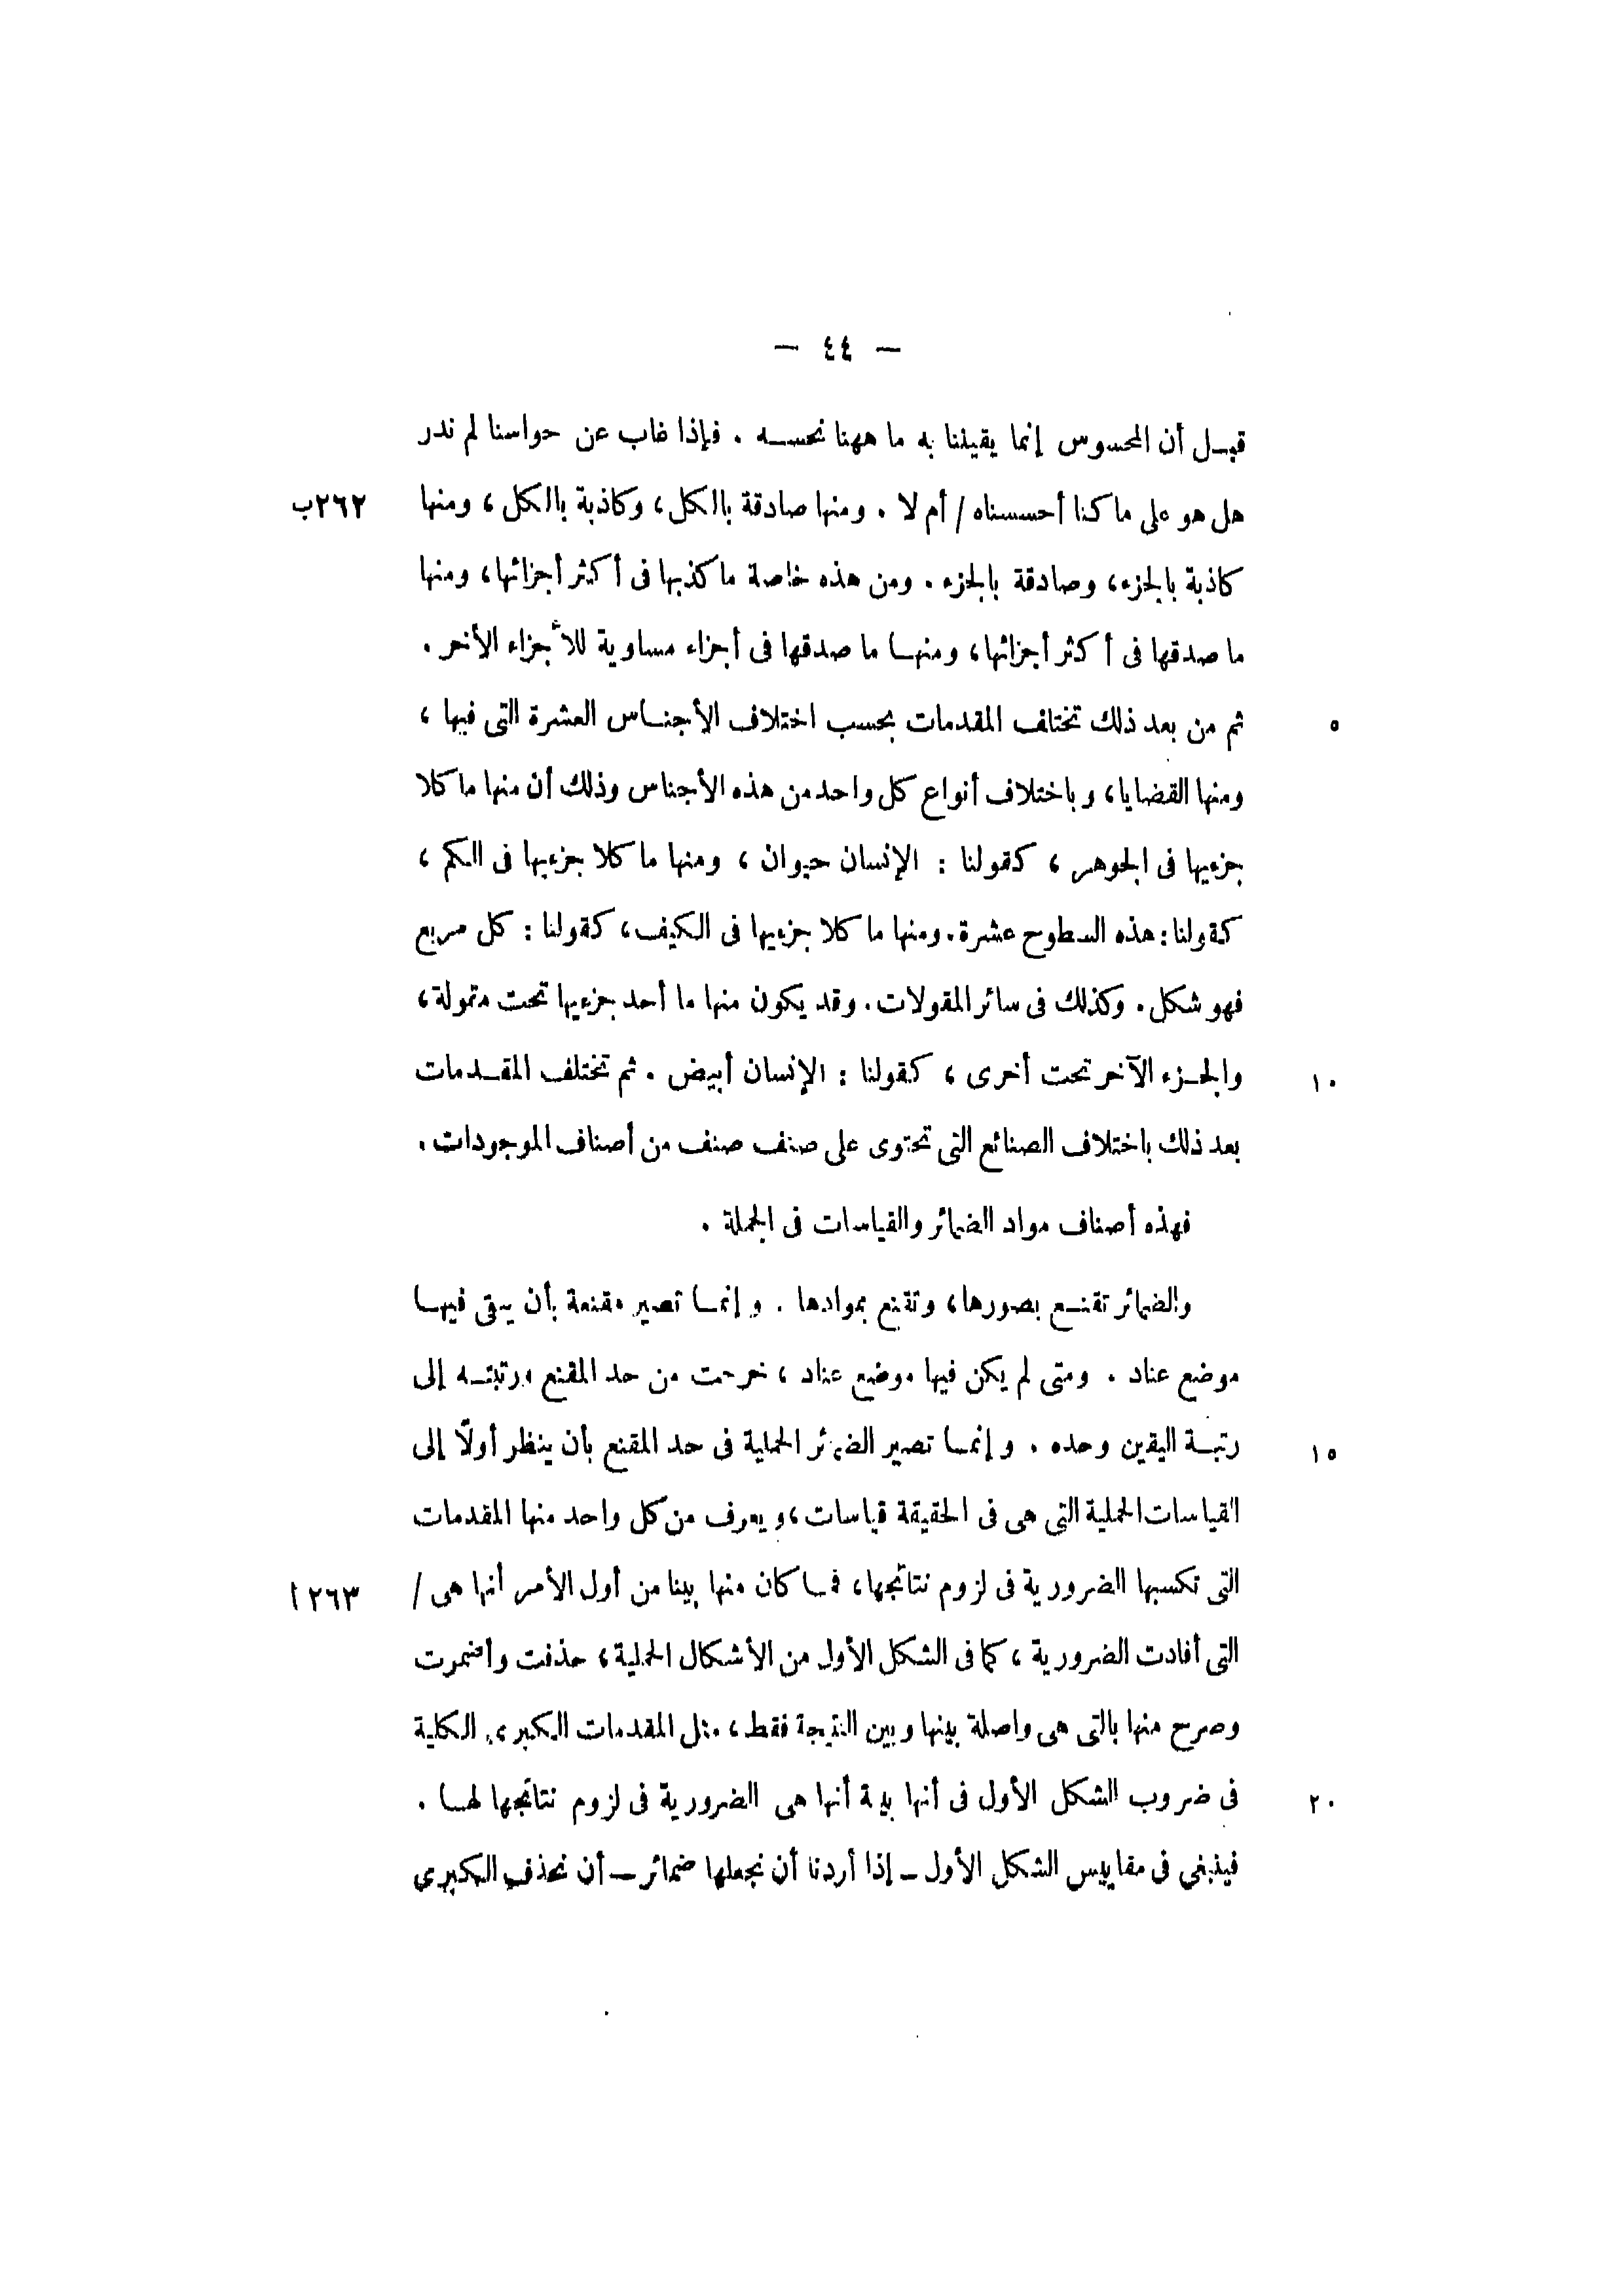 — ٤٤ —
قبل أن المحسوس إنما يقيننا به ما ههنا نحسه . فإذا غاب عن حواسنا لم ندر
هل هو على ما كنا أحسسناه / أم لا . ومنها صادقة بالكل، وكاذبة بالكل، ومنها ٢٦٢ب
كاذبة بالجزء، وصادقة بالجزء . ومن هذه خاصة ما كذبها فى أكثر أجزائها، ومنها
ما صدقها فى أكثر أجزائها، ومنها ما صدقها فى أجزاء مساوية للأجزاء الأخر .
٥ ثم من بعد ذلك تختلف المقدمات بحسب اختلاف الأجناس العشرة التى فيها ،
ومنها القضايا، وباختلاف أنواع كل واحد من هذه الأجناس وذلك أن منها ما كلا
جزءيها فى الجوهر ، كقولنا : الإنسان حيوان ، ومنها ما كلا جزءيها فى الكم ،
كقولنا: هذه السطوح عشرة. ومنها ما كلا جزءيها فى الكيف، كقولنا : كل مربع
فهو شكل. وكذلك فى سائر المقولات. وقد يكون منها ما أحد جزءيها تحت مقولة،
١٠ والجزء الآخر تحت أخرى ، كقولنا : الإنسان أبيض . ثم تختلف المقدمات
بعد ذلك باختلاف الصنائع التى تحتوى على صنف صنف من أصناف الموجودات .
فهذه أصناف مواد الضمائر والقياسات فى الجملة .
والضمائر تقنع بصورها، وتقنع بموادها . وإنما تصير مقنعة بأن يبقى فيها
موضع عناد . ومتى لم يكن فيها موضع عناد ، خرجت من حد المقنع ورتبته إلى
١٥ رتبة اليقين وحده . وإنما تصير الضمائر الحملية فى حد المقنع بأن ينظر أولًا إلى
القياسات الحملية التى هى فى الحقيقة قياسات ، ويعرف من كل واحد منها المقدمات
التى تكسبها الضرورية فى لزوم نتائجها، فما كان منها بينا من أول الأمر أنها هى / ٢٦٣ا
التى أفادت الضرورية ، كما فى الشكل الأول من الأشكال الحملية ، حذفت وأضمرت
وصرح منها بالتى هى واصلة بينها وبين النتيجة فقط ، مثل المقدمات الكبرى الكلية
٢٠ فى ضروب الشكل الأول فى أنها بينة أنها هى الضرورية فى لزوم نتائجها لها .
فينبغى فى مقاييس الشكل الأول — إذا أردنا أن نجعلها ضمائر — أن نحذف الكبرى